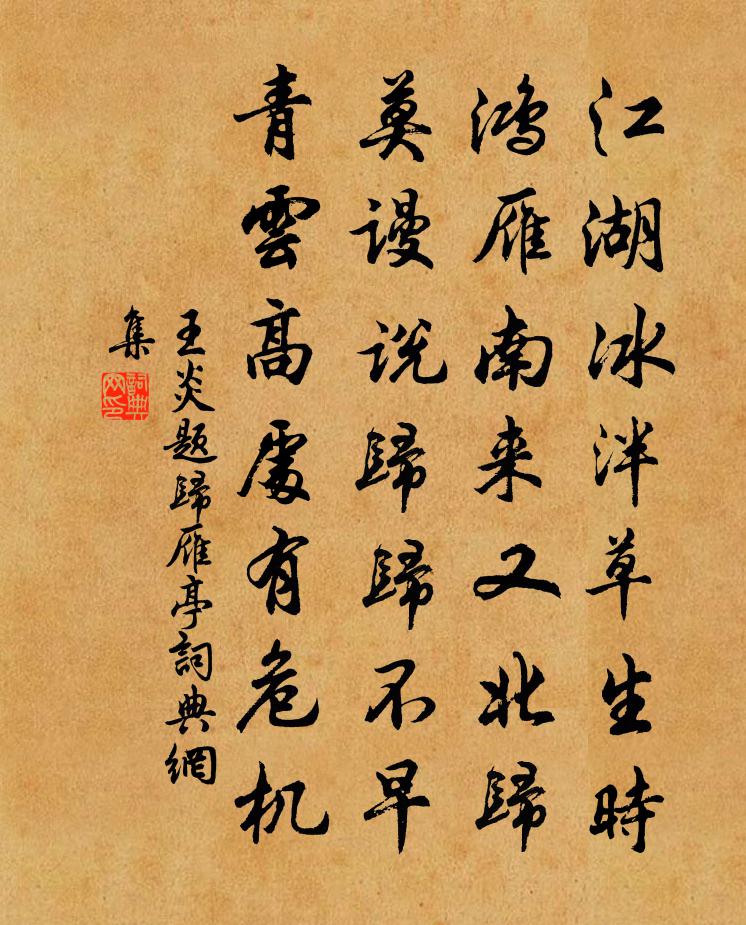 江湖冰泮草生時
鴻雁南来又北歸
莫謾説歸歸不早
青雲高處有危机
王炎题歸雁亭詞典網
集
詞典網印